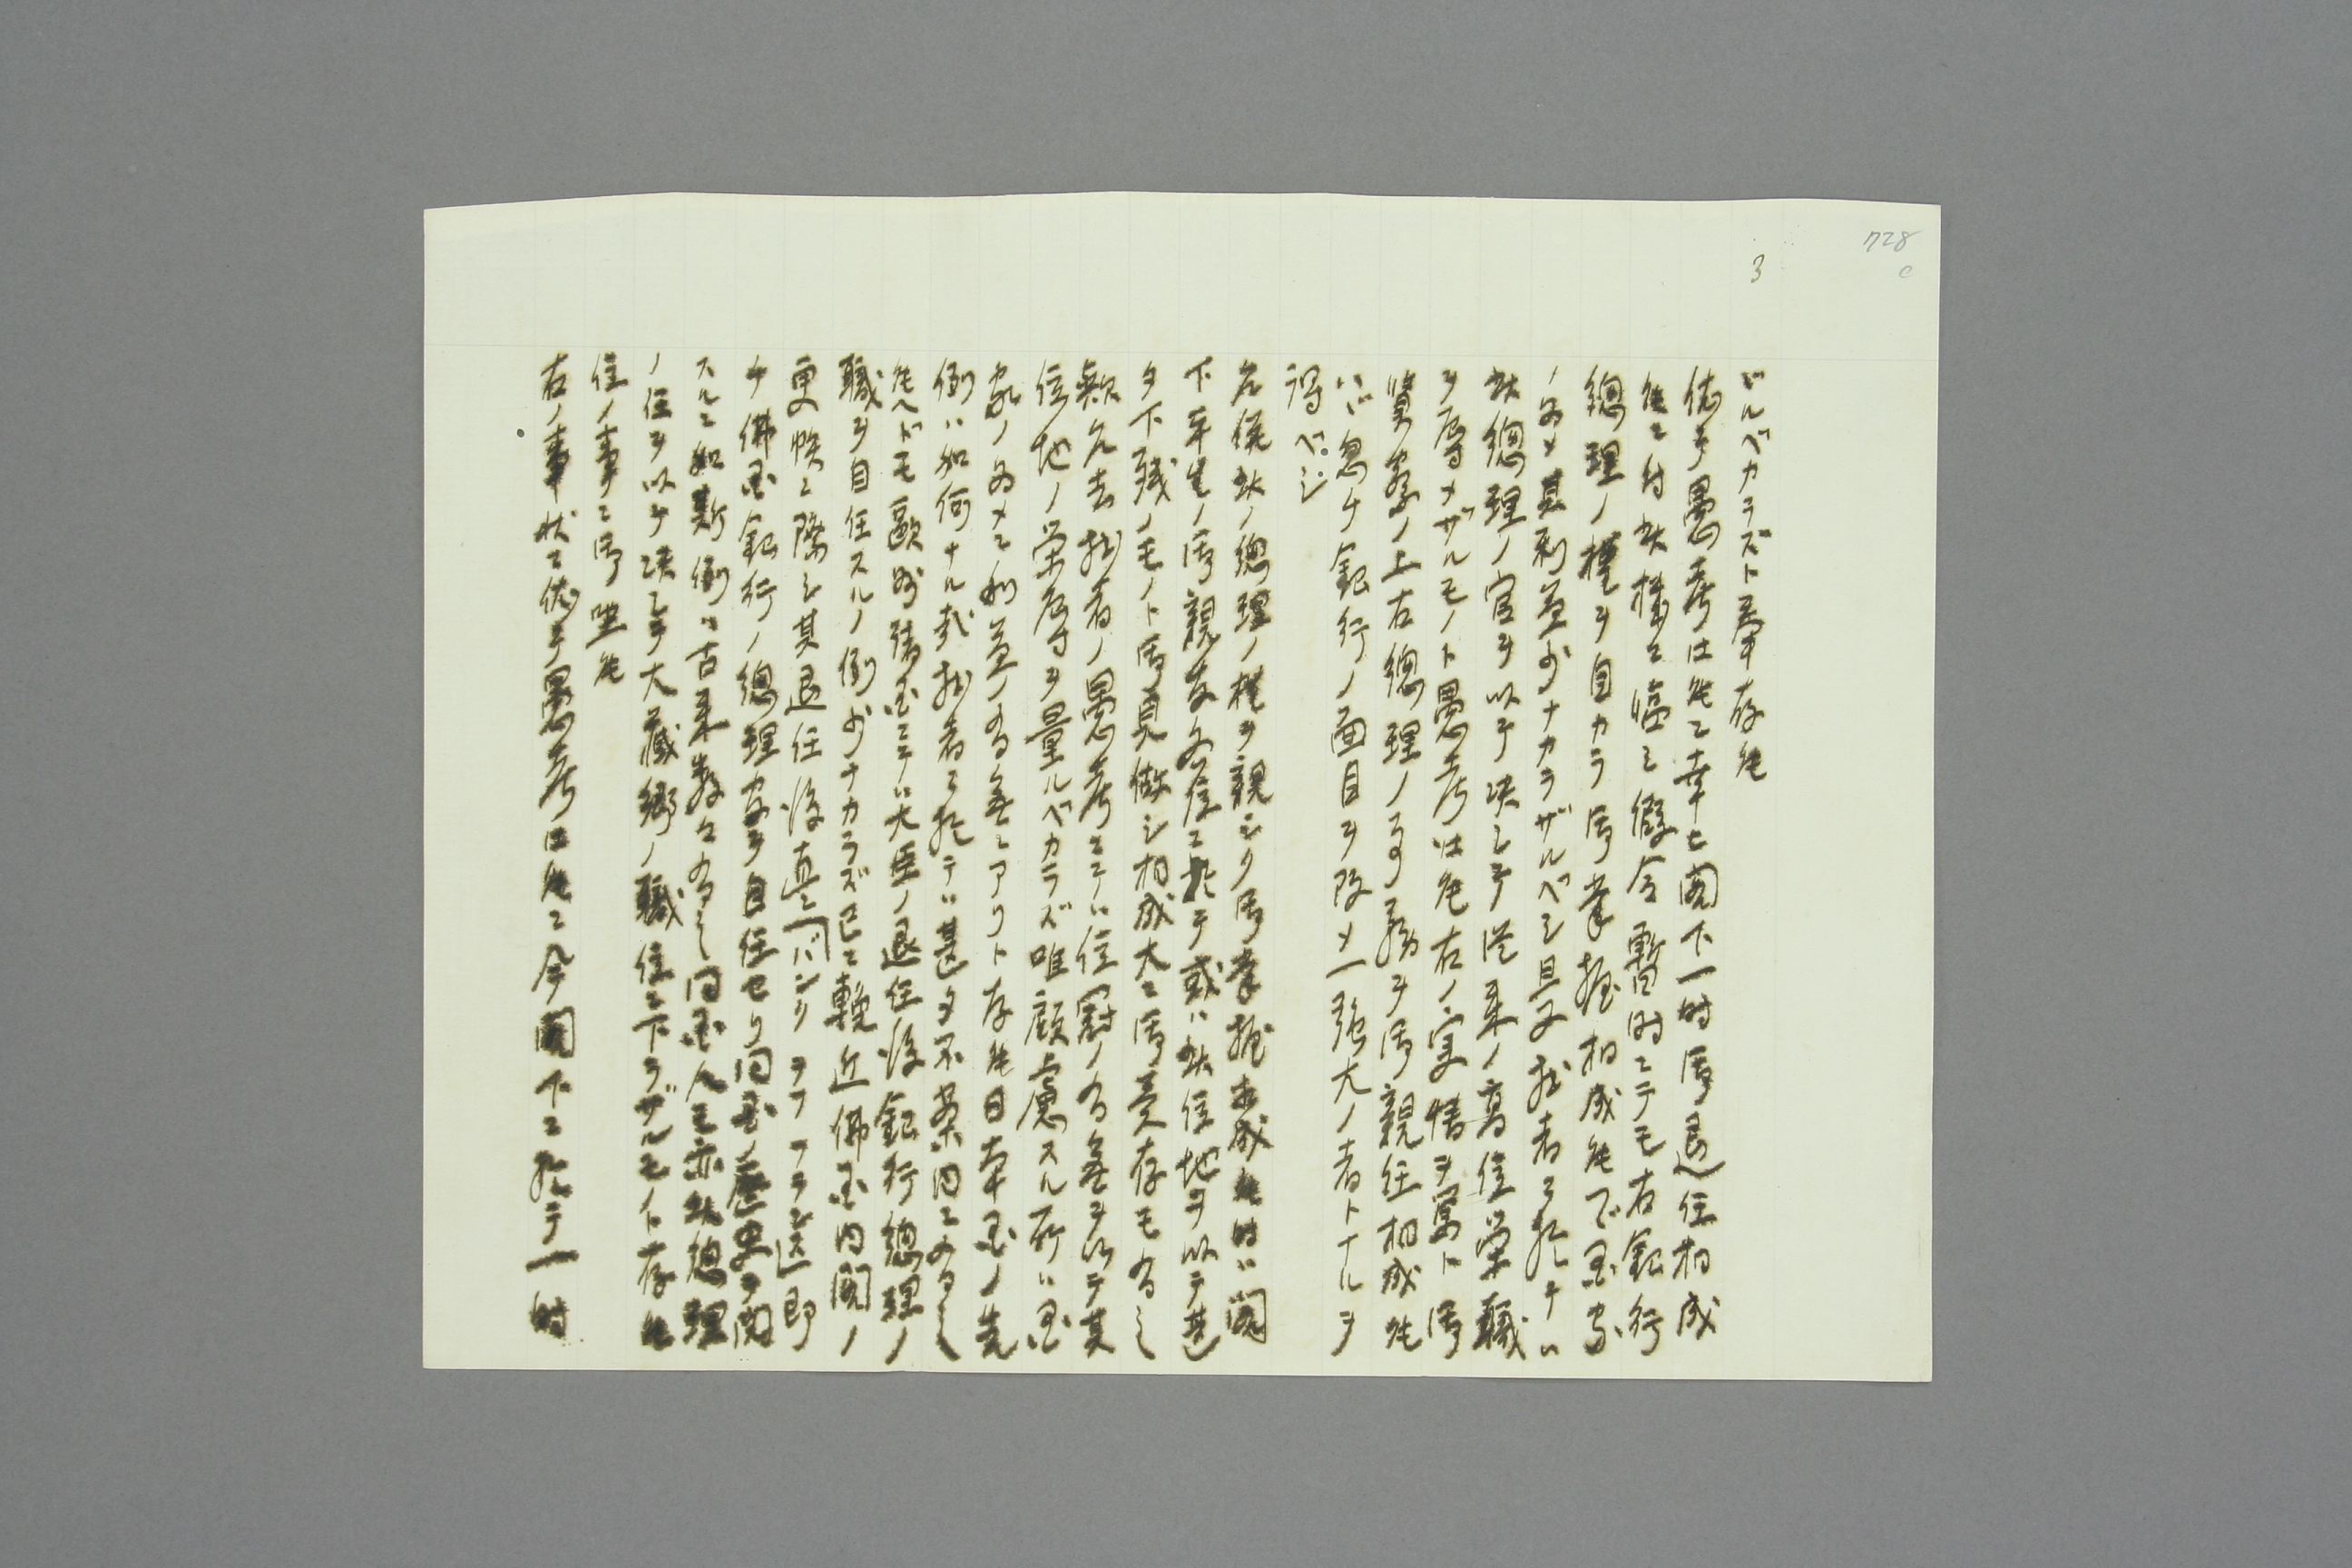 728
c
3
ドルベカラズト奉存候
依テ愚考仕候ニ幸ヒ閣下一時御退任相成
候ニ付此機ニ臨ミ假令暫時ニテモ右銀行
總理ノ権ヲ自カラ御掌握相成候ハデ国家
ノ為メ其利益少ナカラザルベシ且又拙者ニ於テハ
此總理ノ官ヲ以テ決シテ従来ノ高位栄職
ヲ辱メザルモノト愚考仕候右ノ実情ヲ篤ト御
賢察ノ上右總理ノ事務ヲ御親任相成候
ハヾ忽チ銀行ノ面目ヲ改メ一強大ノ者トナルヲ
得ベシ
乍併此ノ總理ノ権ヲ親シク御掌握相成候時ハ閣
下平生ノ御親友各位ニ於テ或ハ此位地ヲ以テ甚
タ下賤ノモノト御見做シ相成大ニ御異存モ有之
歟乍去拙者ノ愚考ニテハ位爵ノ有無ヲ以テ其
位地ノ栄辱ヲ量ルベカラズ唯顧慮スル所ハ国
家ノ為メニ利益ノ有無ニアリト存候日本国ノ先
例ハ如何ナル哉拙者ニ於テハ甚タ不案内ニ有之
候ヘドモ歐州諸国ニテハ大臣ノ退任後銀行總理ノ
職ヲ自任スルノ例少ナカラズ已ニ輓近佛国内閣ノ
更迭ニ際シ其退任後直ニ「バンク ヲフ フランス」即
チ佛国銀行ノ總理官ヲ自任セリ同国ノ歴史ヲ閲
スルニ如斯例ハ古来数々有之同国人モ亦此總理
ノ任ヲ以テ決シテ大蔵卿ノ職位ニ下ラザルモノト存候
位ノ事ニ御坐候
右ノ事状ニ依テ愚考仕候ニ今閣下ニ於テ一時